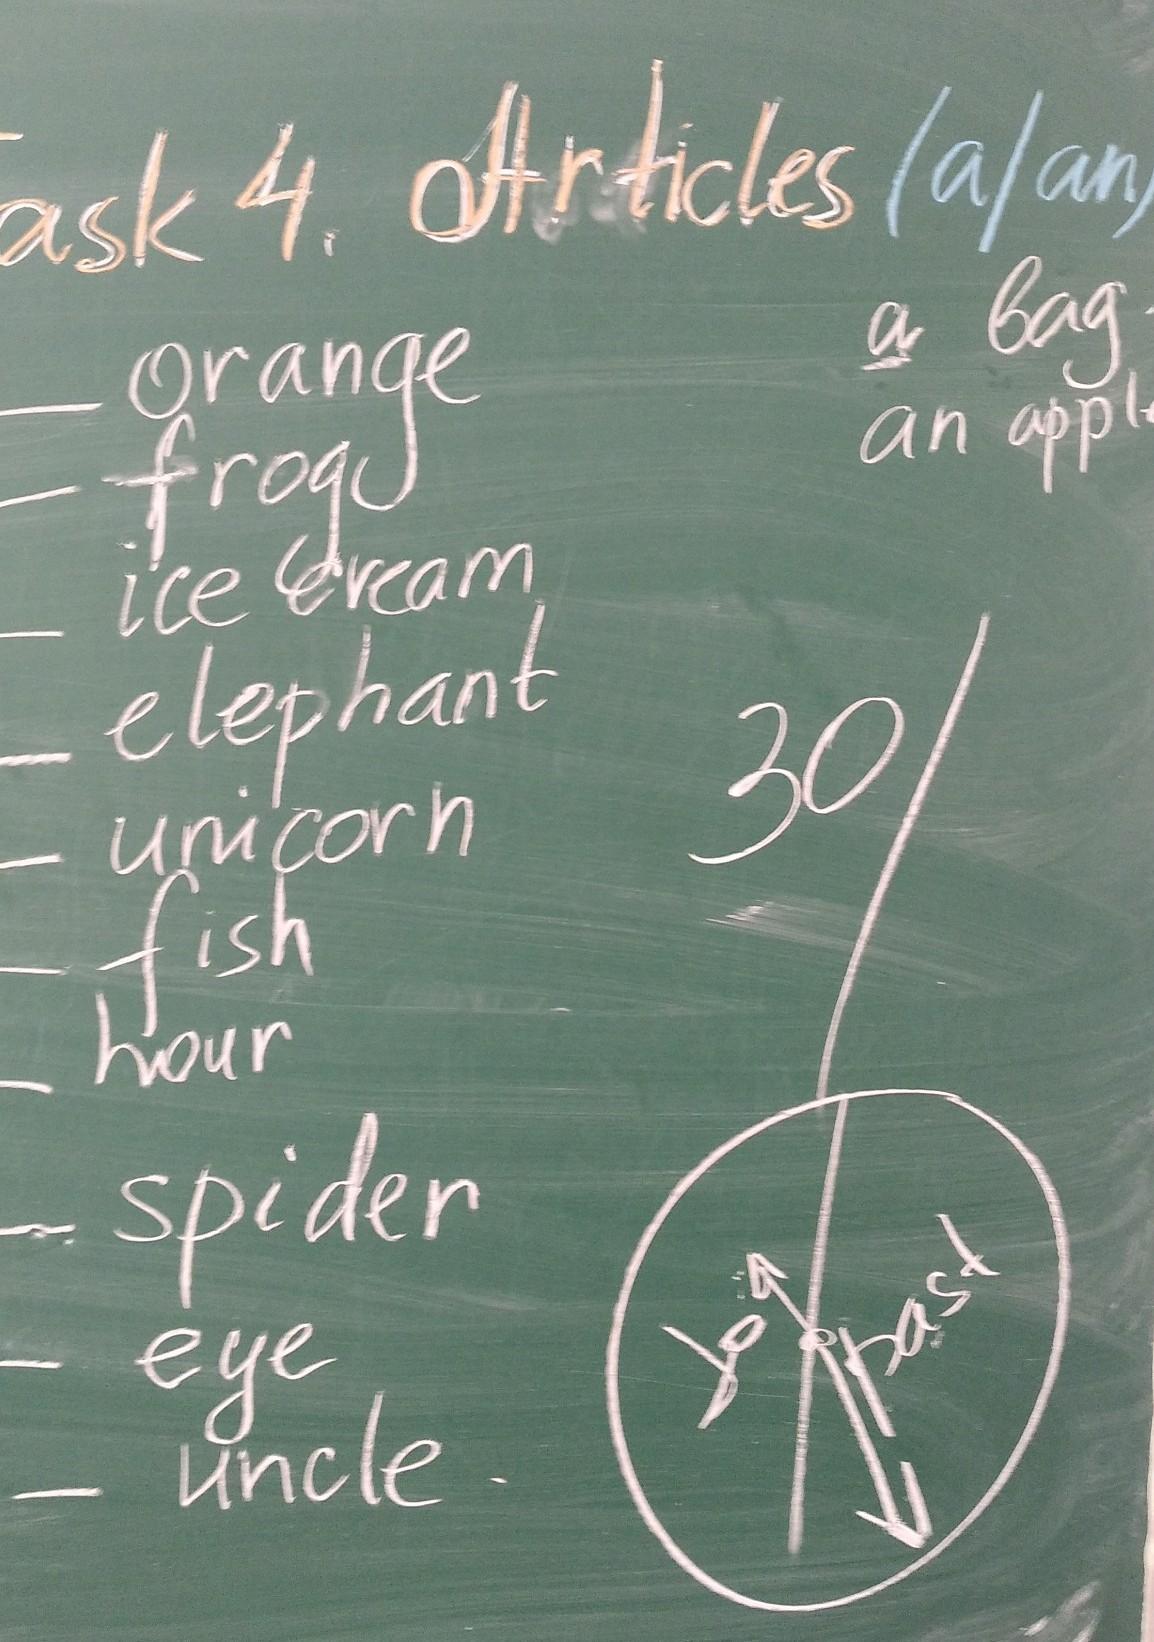 Task 4. Articles (a/an)
a bag.
an apple
__ orange
__ frog
__ ice cream
__ elephant
__ unicorn
__ fish
__ hour
__ spider
__ eye
__ uncle.
30
to
past